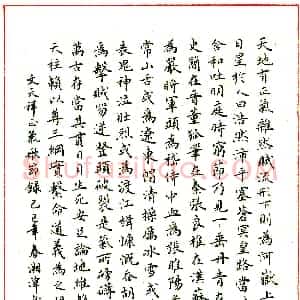 天地有正氣雜然賦流形下則為河嶽上
日星於人曰浩然沛乎塞蒼冥皇路當
含和吐明庭時窮節乃見一一垂丹青在
史簡在晉董狐筆在秦張良椎在漢蘇
為嚴將軍頭為嵇侍中血為張睢陽
常山舌或為遼東帽清操厲冰雪或
表鬼神泣壯烈或為渡江楫慷慨吞胡
為擊賊笏逆豎頭破裂是氣所磅礴
萬古存當其貫日月生死安足論地維
天柱賴以尊三綱實繫命道義為之
文天祥正氣歌節錄 己巳年春湘潭